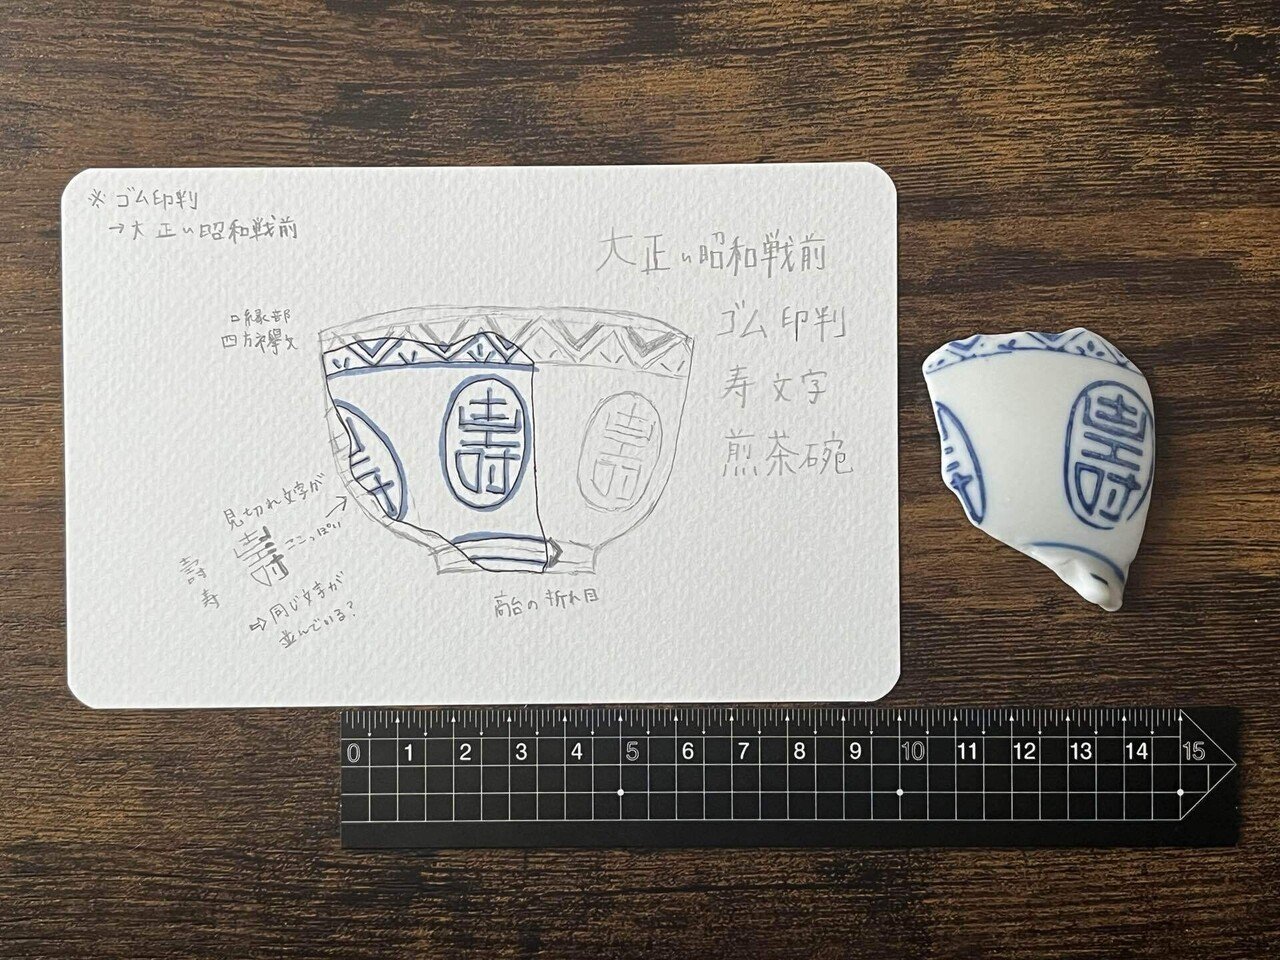 ※ゴム印判
→大正〜昭和戦前
大正〜昭和戦前
ゴム印判
寿文字
煎茶碗
口縁部
四方襷文
寿
寿
寿
見切れ文字が
ここっぽい
壽
寿
壽
⇨同じ文字が
並んでいる?
高台の折れ目
0 1 2 3 4 5 6 7 8 9 10 11 12 13 14 15